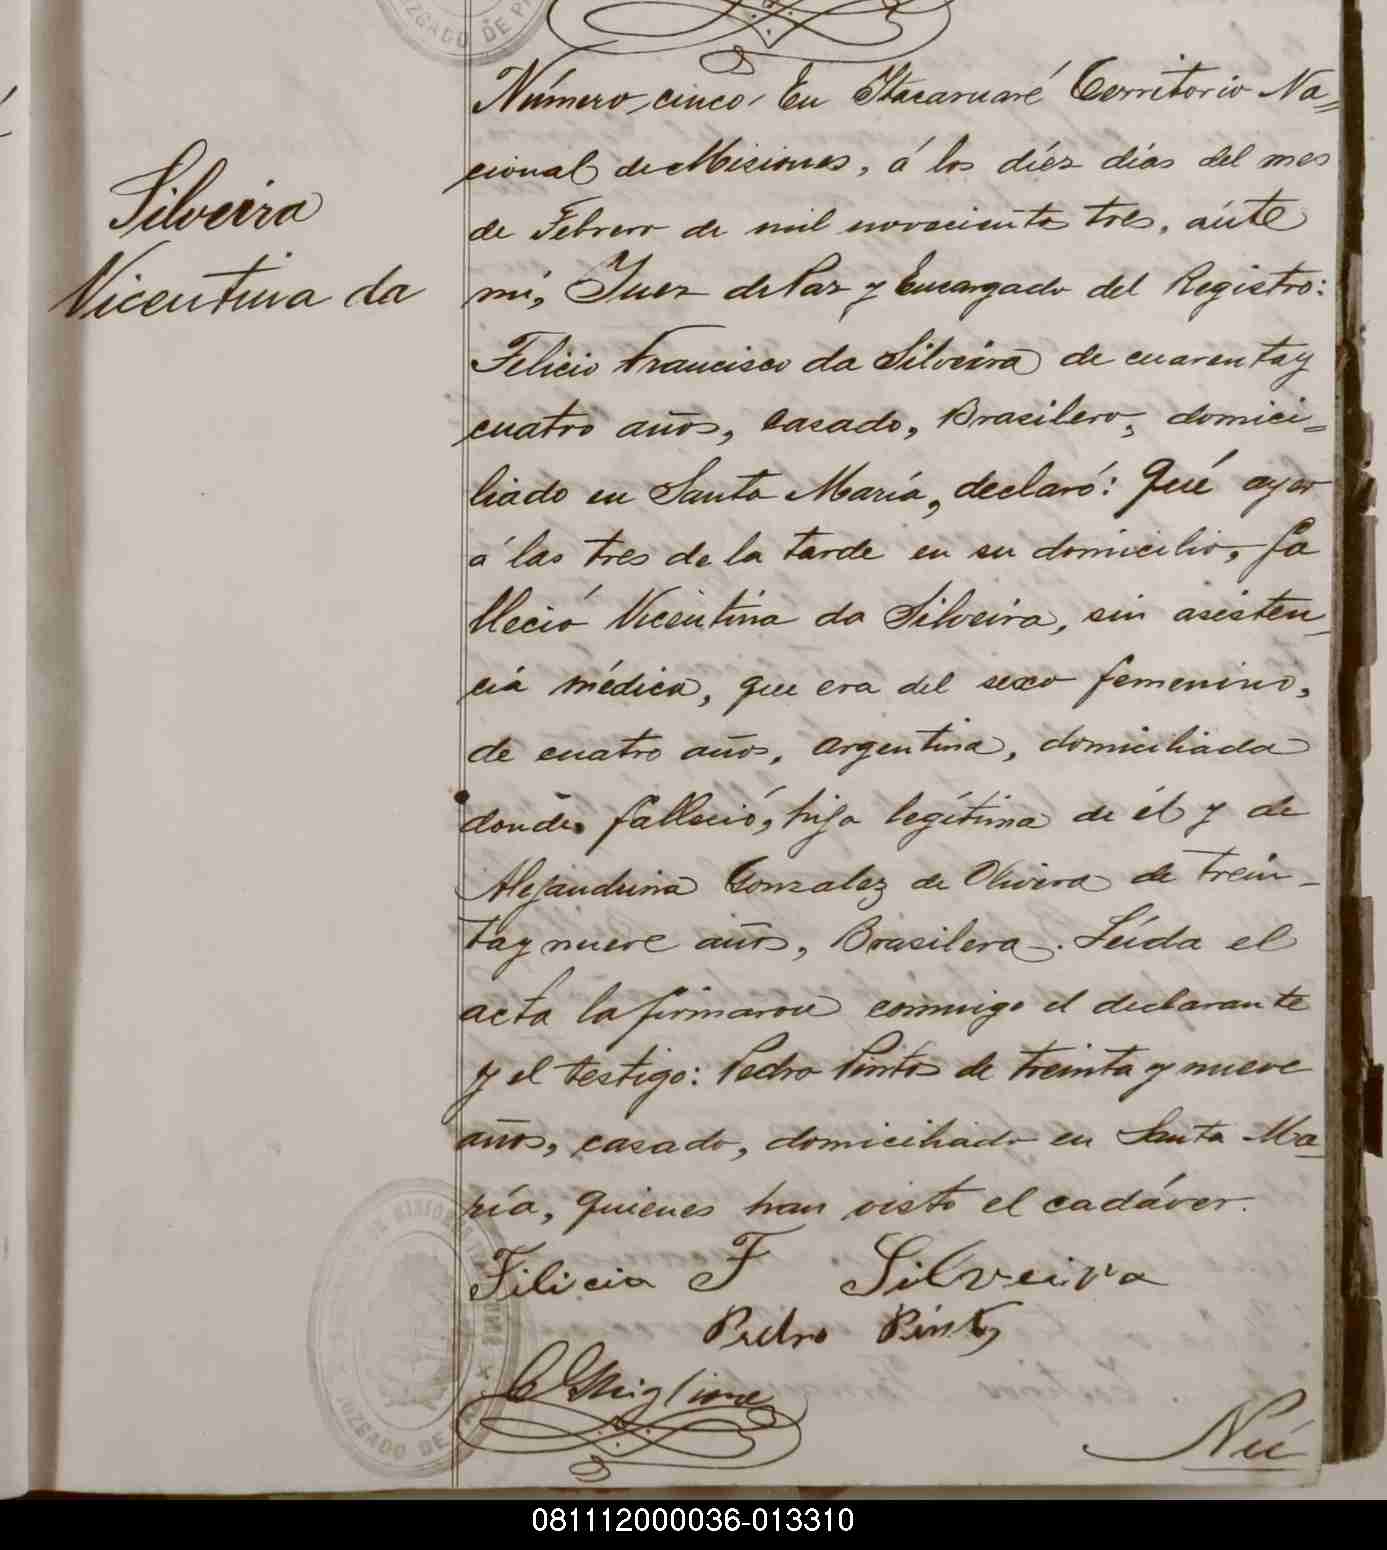 JUZGADO DE P
Silveira
Vicentina da
Número cinco, En Itacaruaré Territorio Na=
cional de Misiones, á los díez días del mes
de Febrero de mil novecientos tres, ante
mí, Juez de Paz y Encargado del Registro:
Felicio Francisco da Silveira de cuarenta y
cuatro años, casado, Brasilero, domici=
liado en Santa María, declaró: Qué ayer
á las tres de la tarde en su domicilio, fa
lleció Vicentina da Silveira, sin asisten
cia médica, que era del sexo femenino,
de cuatro años, argentina, domiciliada
donde falleció, hija legítima de él y de
Alejandrina Gonzalez de Olivera de trein-
ta y nueve años, Brasilera. Leída el
acta la firmaron conmigo el declarante
y el testigo: Pedro Pintos de treinta y nueve
años, casado, domiciliado en Santa Ma
ría, quienes han visto el cadáver.
Filicia F Silveira
Pedro Pintos
JUZGADO DE
Nú
081112000036-013310